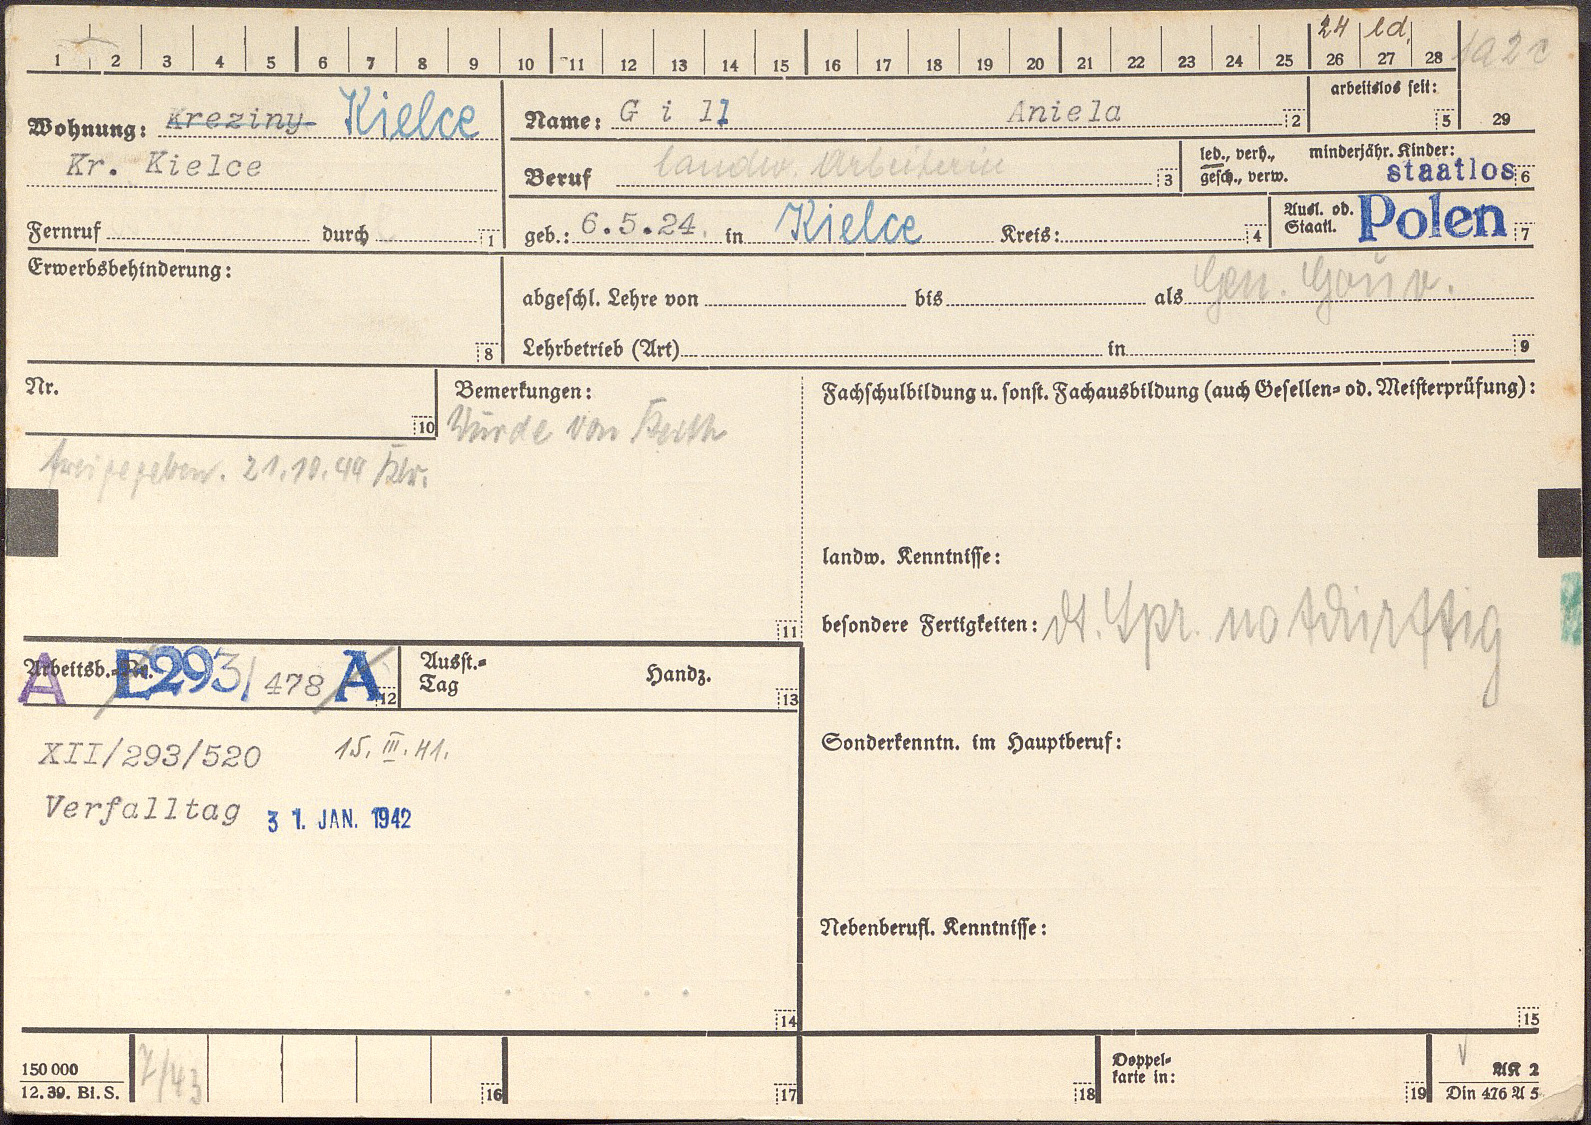 24 ld.
1 2 3 4 5 6 7 8 9 10 11 12 13 14 15 16 17 18 19 20 21 22 23 24 25 26 27 28
Wohnung: Kreziny Kielce
Kr. Kielce
Fernruf durch 1
Name: Gill Aniela 2
arbeitslos seit: 5 29
Beruf landw. Arbeiterin 3
led., verh., minderjähr. Kinder:
gesch., verw. staatlos 6
geb.: 6.5.24. in Kielce Kreis: 4
Ausl. od. Staatl. Polen 7
Erwerbsbehinderung:
8
Gen. Gouv.
abgeschl. Lehre von bis als
Lehrbetrieb (Art) in 9
Nr.
10
Bemerkungen:
Wurde von
freigegeben. 21.10.44
11
Fachschulbildung u. sonst. Fachausbildung (auch Gesellen= od. Meisterprüfung):
landw. Kenntnisse:
besondere Fertigkeiten: dt. Spr. notdürftig
Arbeitsb.=Nr. A E293/478 A 12
Ausst.=Tag Handz. 13
XII/293/520 15. III. 41.
Verfalltag 31. JAN. 1942
14
Sonderkenntn. im Hauptberuf:
Nebenberufl. Kenntnisse:
15
150 000
12. 39. Bi. S.
7/43
16
17
18
Doppel=
karte in:
19
AK 2
Din 476 A 5